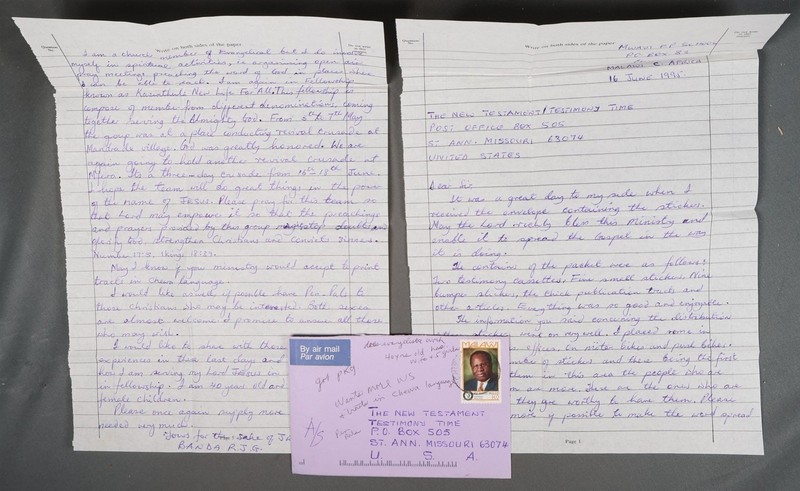 Question No.
Write on both sides of the paper
I am a member of Evangelical but I do
myself in spiritual activities, in organising open air
meetings preaching the word of God in places where
I can be able to reach. I am again in Fellowship
known as New Life For All. This fellowship is
compose of member from different denominations, coming
together serving the Almighty God. From 6th to 7th May
the group was at a place conducting revival crusade at
village. God was greatly honored. We are
again going to hold another revival crusade at
Its a three-day crusade from 16th-18th June.
I hope the team will do great things in the power
of the name of JESUS. Please pray for this team so
that Lord may empower it so that the preachings
and prayers by this group
God strengthen Christians and convicts sinners.
May I know if your ministry would accept to print
tracts in Chewa language.
I would like as well, if possible have Pen-Pals to
those Christians who may be interested. Both sexes
are almost welcome. I promise to answer all those
who may write.
I would like to share with them
experiences in these last days and
how I am serving my Lord Jesus in
in fellowship. I am 40 years old and
female children.
Please once again supply more
needed very much.
Yours for the sake of
BANDA R.J.G.
Write on both sides of the paper
P.O. BOX
MALAWI C. AFRICA
16 JUNE 1995
THE NEW TESTAMENT/TESTIMONY TIME
POST OFFICE BOX 505
ST ANN. MISSOURI 63074
UNITED STATES
Dear Sir
It was a great day to my side when I
received the envelope containing the stickers.
May the Lord richly bless this Ministry and
enable it to spread the Gospel in the way
it is doing.
The contains of the packet were as follows:
Two testimony cassettes, Five small stickers, Nine
bumper stickers, the thick publication tracts and
other articles. Everything was so good and enjoyable.
The information you said concerning the distribution
stickers went on very well. I placed some in
offices, on motor bikes and push bikes.
stickers and these being the first
them in this area the people who are
are more. There are the ones who are
they are worthy to have them. Please
more if possible to make the word spread
Page 1
By air mail
Par avion
got pkg
40 year old
Wants more US
+ tracts in Chewa language
A/S
MALAWI
THE NEW TESTAMENT
TESTIMONY TIME
P.O. BOX 505
ST. ANN. MISSOURI 63074
U. S. A.